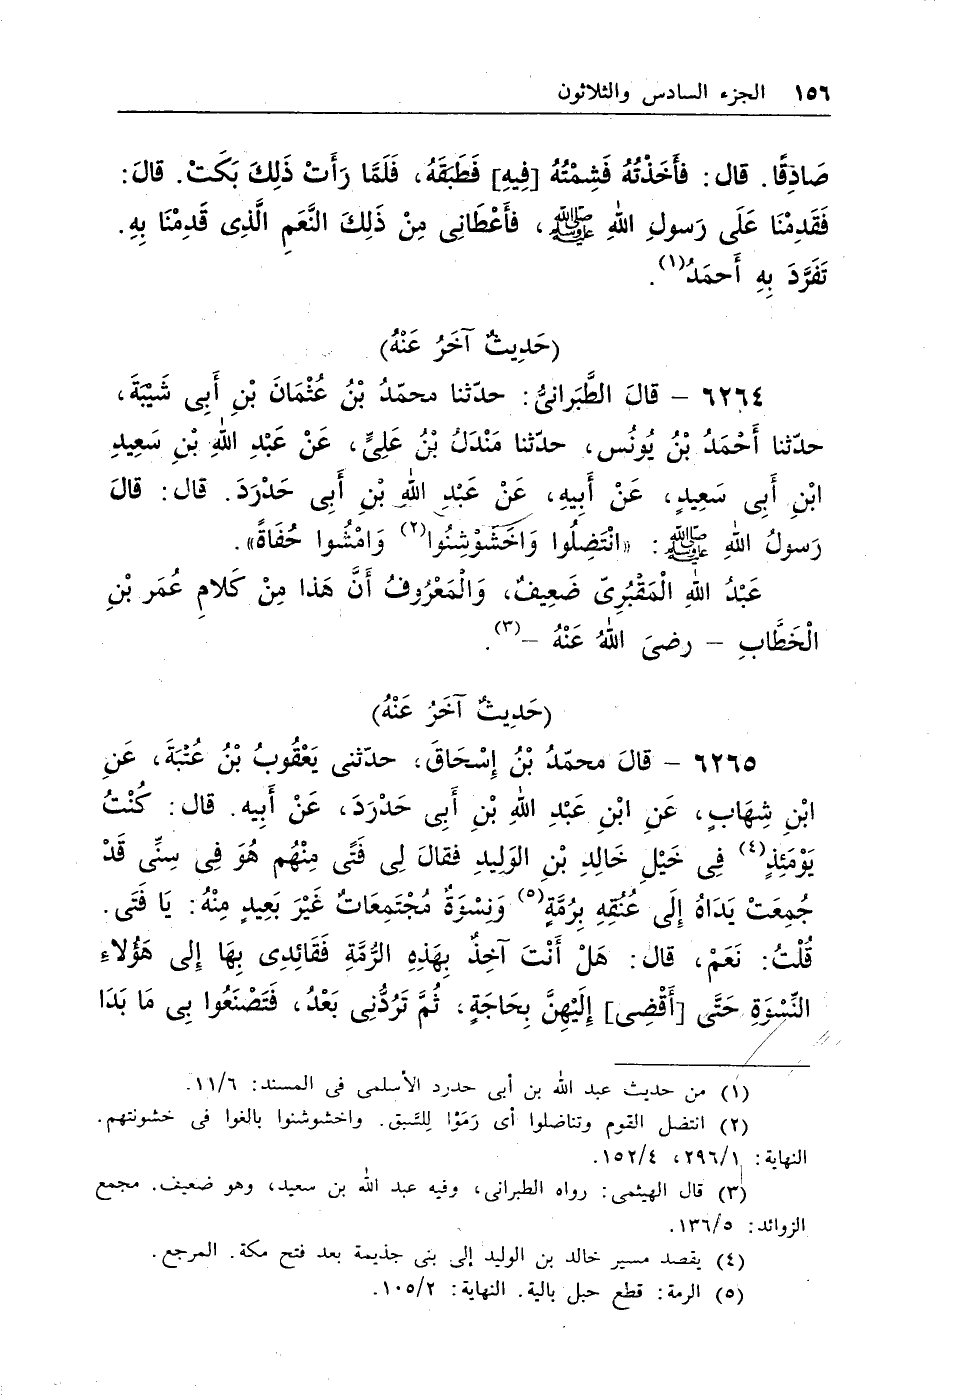 ١٥٦ الجزء السادس والثلاثون
صَادِقًا. قال: فأَخَذْتُهُ فَشِمْتُهُ [فِيهِ] فَطَبَقَهُ، فَلَمَّا رَأَتْ ذَلِكَ بَكَتْ. قالَ:
فَقَدِمْنَا عَلَى رَسولِ اللهِ ﷺ، فأَعْطَانِى مِنْ ذَلِكَ النَّعَمِ الَّذِى قَدِمْنَا بِهِ.
تَفَرَّدَ بِهِ أَحمَدُ(١).
(حَدِيثٌ آخَرُ عَنْهُ)
٦٢٦٤ – قالَ الطَّبَرانىُّ: حدّثنا محمّدُ بْنُ عُثْمَانَ بْنِ أَبِى شَيْبَةَ،
حدّثنا أَحْمَدُ بْنُ يُونُس، حدّثنا مَنْدَلُ بْنُ عَلِىٍّ، عَنْ عَبْدِ اللهِ بْنِ سَعِيدِ
ابْنِ أَبِى سَعِيدٍ، عَنْ أَبِيهِ، عَنْ عَبْدِ اللهِ بْنِ أَبِى حَدْرَدَ. قال: قالَ
رَسولُ اللهِ ﷺ: «انْتَضِلُوا وَاخْشَوْشِنُوا(٢) وَامْشُوا حُفَاةً».
عَبْدُ اللهِ الْمَقْبُرِىّ ضَعِيفٌ، وَالْمَعْرُوفُ أَنَّ هَذا مِنْ كَلامِ عُمَر بْنِ
الْخَطَّابِ – رضىَ اللهُ عَنْهُ –(٣).
(حَدِيثٌ آخَرُ عَنْهُ)
٦٢٦٥ – قالَ محمّدُ بْنُ إِسْحَاقَ، حدّثنى يَعْقُوبُ بْنُ عُتْبَةَ، عَنِ
ابْنِ شِهَابٍ، عَنِ ابْنِ عَبْدِ اللهِ بْنِ أَبى حَدْرَدَ، عَنْ أَبيه. قال: كُنْتُ
يَوْمَئِذٍ(٤) فِى خَيْلِ خَالِدِ بْنِ الوَلِيدِ فقالَ لِى فَتًى مِنْهُم هُوَ فِى سِنِّى قَدْ
جُمِعَتْ يَدَاهُ إِلَى عُنُقِهِ بِرُمَّةٍ(٥) وَنِسْوَةٌ مُجْتَمِعَاتٌ غَيْرَ بَعِيدٍ مِنْهُ: يَا فَتَى.
قُلْتُ: نَعَمْ، قال: هَلْ أَنْتَ آخِذٌ بِهَذِهِ الرُّمَّةِ فَقَائِدِى بِهَا إِلى هَؤُلاءِ
النِّسْوَةِ حَتَّى [أَقْضِى] إِلَيْهِنَّ بِحَاجَةٍ، ثُمَّ تَرُدُّنِى بَعْدُ، فَتَصْنَعُوا بِى مَا بَدَا
(١) من حديث عبد الله بن أبى حدرد الأسلمى فى المسند: ١١/٦.
(٢) انتضل القوم وتناضلوا أى رَمَوْا لِلسَّبق. واخشوشنوا بالغوا فى خشونتهم.
النهاية: ٢٩٦/١، ١٥٢/٤.
(٣) قال الهيثمى: رواه الطبرانى، وفيه عبد الله بن سعيد، وهو ضعيف. مجمع
الزوائد: ١٣٦/٥.
(٤) يقصد مسير خالد بن الوليد إلى بنى جذيمة بعد فتح مكة. المرجع.
(٥) الرمة: قطع حبل بالية. النهاية: ١٠٥/٢.